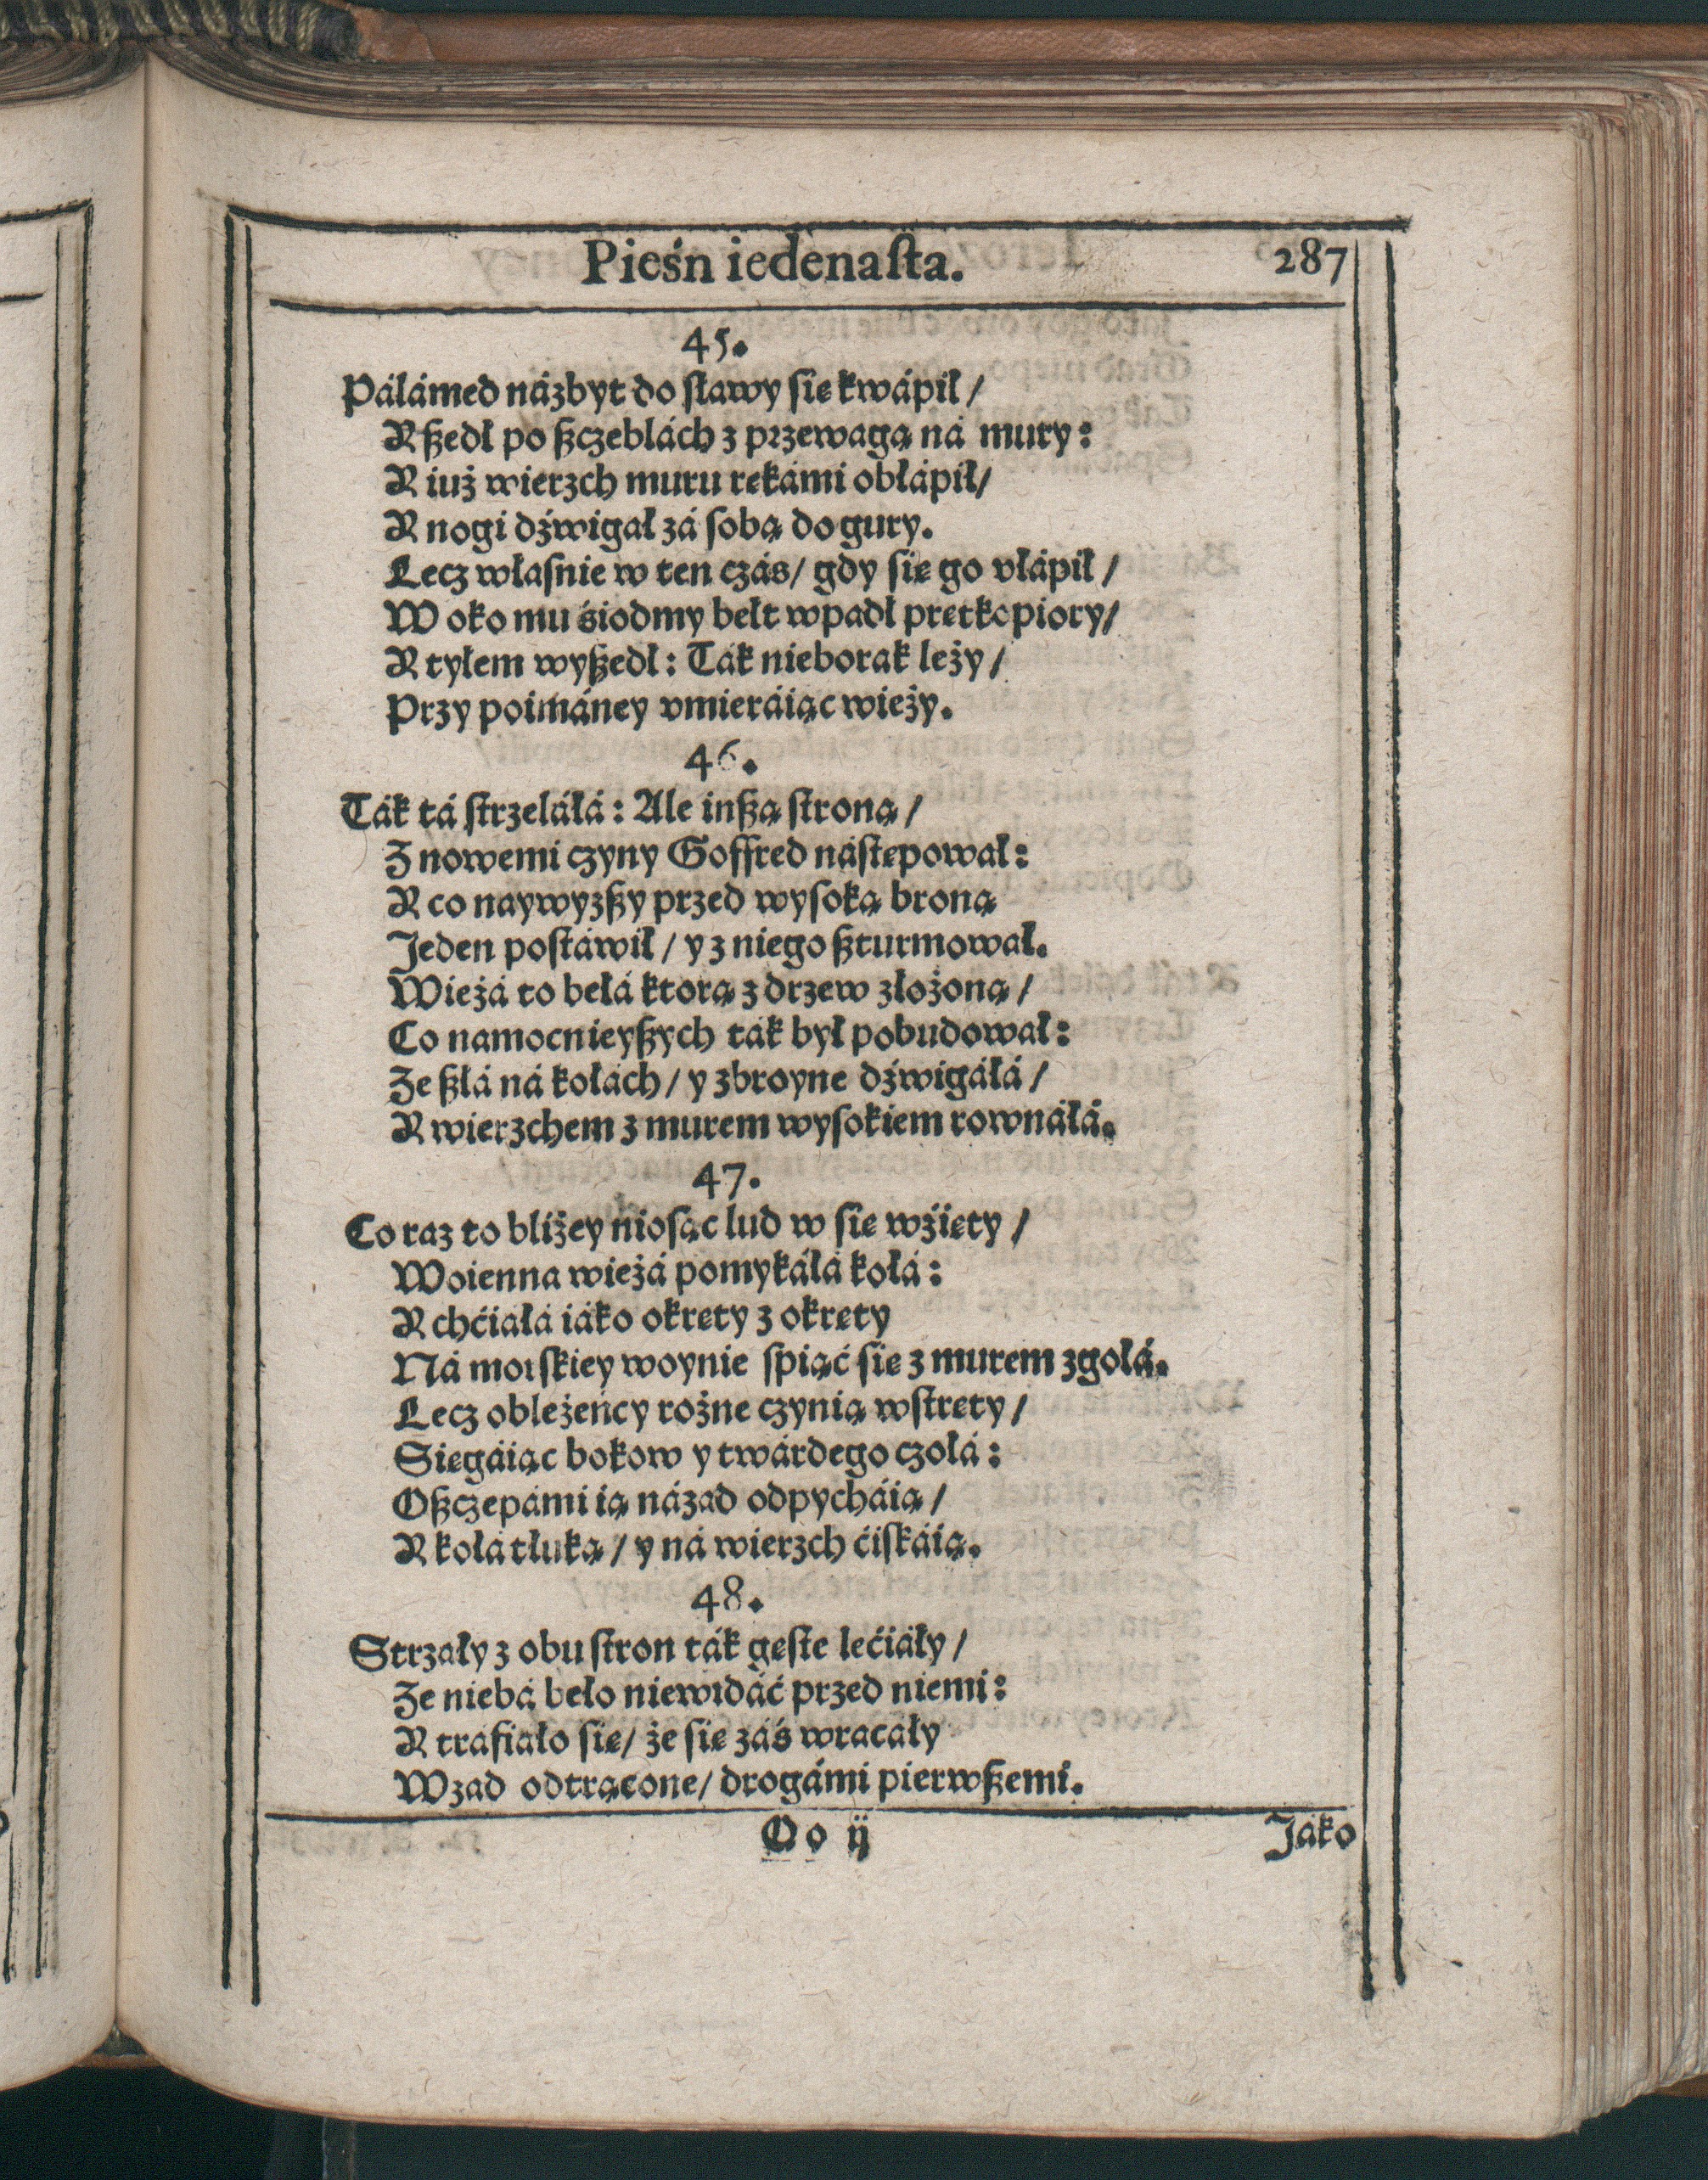 Pieśń iedenaſta.
287
45.
Pálámed názbyt do ſławy ſię kwápił /
Y ßedł po ßczeblách z przewagą ná mury:
Y iuż wierzch muru rękámi obłápił/
Y nogi dźwigał zá ſobą do gury.
Lecz właſnie w ten czás/ gdy ſię go vłápił /
W oko mu śiodmy bełt wpadł prętkopiory/
Y tyłem wyßedł: Ták nieborak leży /
Przy poimáney vmieráiąc wieży.
46.
Ták tá ſtrzeláłá: Ale inßą ſtroną /
Z nowemi czyny Goffred náſtępował:
Y co naywyzßy przed wyſoką broną
Jeden poſtáwił / y z niego ßturmował.
Wieżá to bełá ktorą z drzew złożoną /
Co namocnieyßych ták był pobudował:
Że ßłá ná kołách / y zbroyne dźwigáłá /
Y wierzchem z murem wyſokiem rownáłá.
47.
Co raz to bliżey nioſąc lud w ſię wźięty /
Woienna wieżá pomykáłá kołá:
Y chćiałá iáko okręty z okręty
Ná morſkiey woynie ſpiąć ſię z murem zgołá.
Lecz oblężeńcy rożne czynią wſtręty /
Sięgáiąc bokow y twárdego czołá:
Oßczepámi ią názad odpycháią /
Y kołá tłuką / y ná wierzch ćiſkáią.
48.
Strzały z obu ſtron ták gęſte lećiáły /
Że niebá beło niewidáć przed niemi:
Y trafiało ſię/ że ſię záś wracały
Wzad odtrącone/ drogámi pierwßemi.
Oo ij
Jáko